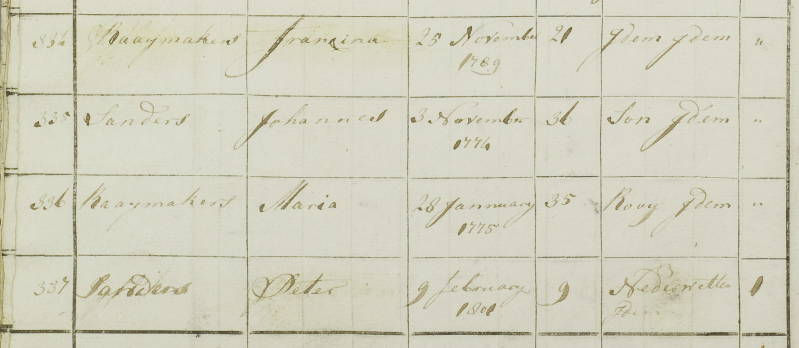 334 Raaymakers Francina 25 November 21 Idem Idem "
1789
335 Sanders Johannes 3 November 36 Son Idem "
1774
336 Raaymakers Maria 28 Jannuary 35 Rooy Idem "
1775
337 Sanders Peter 9 february 9 1
1801 Idem